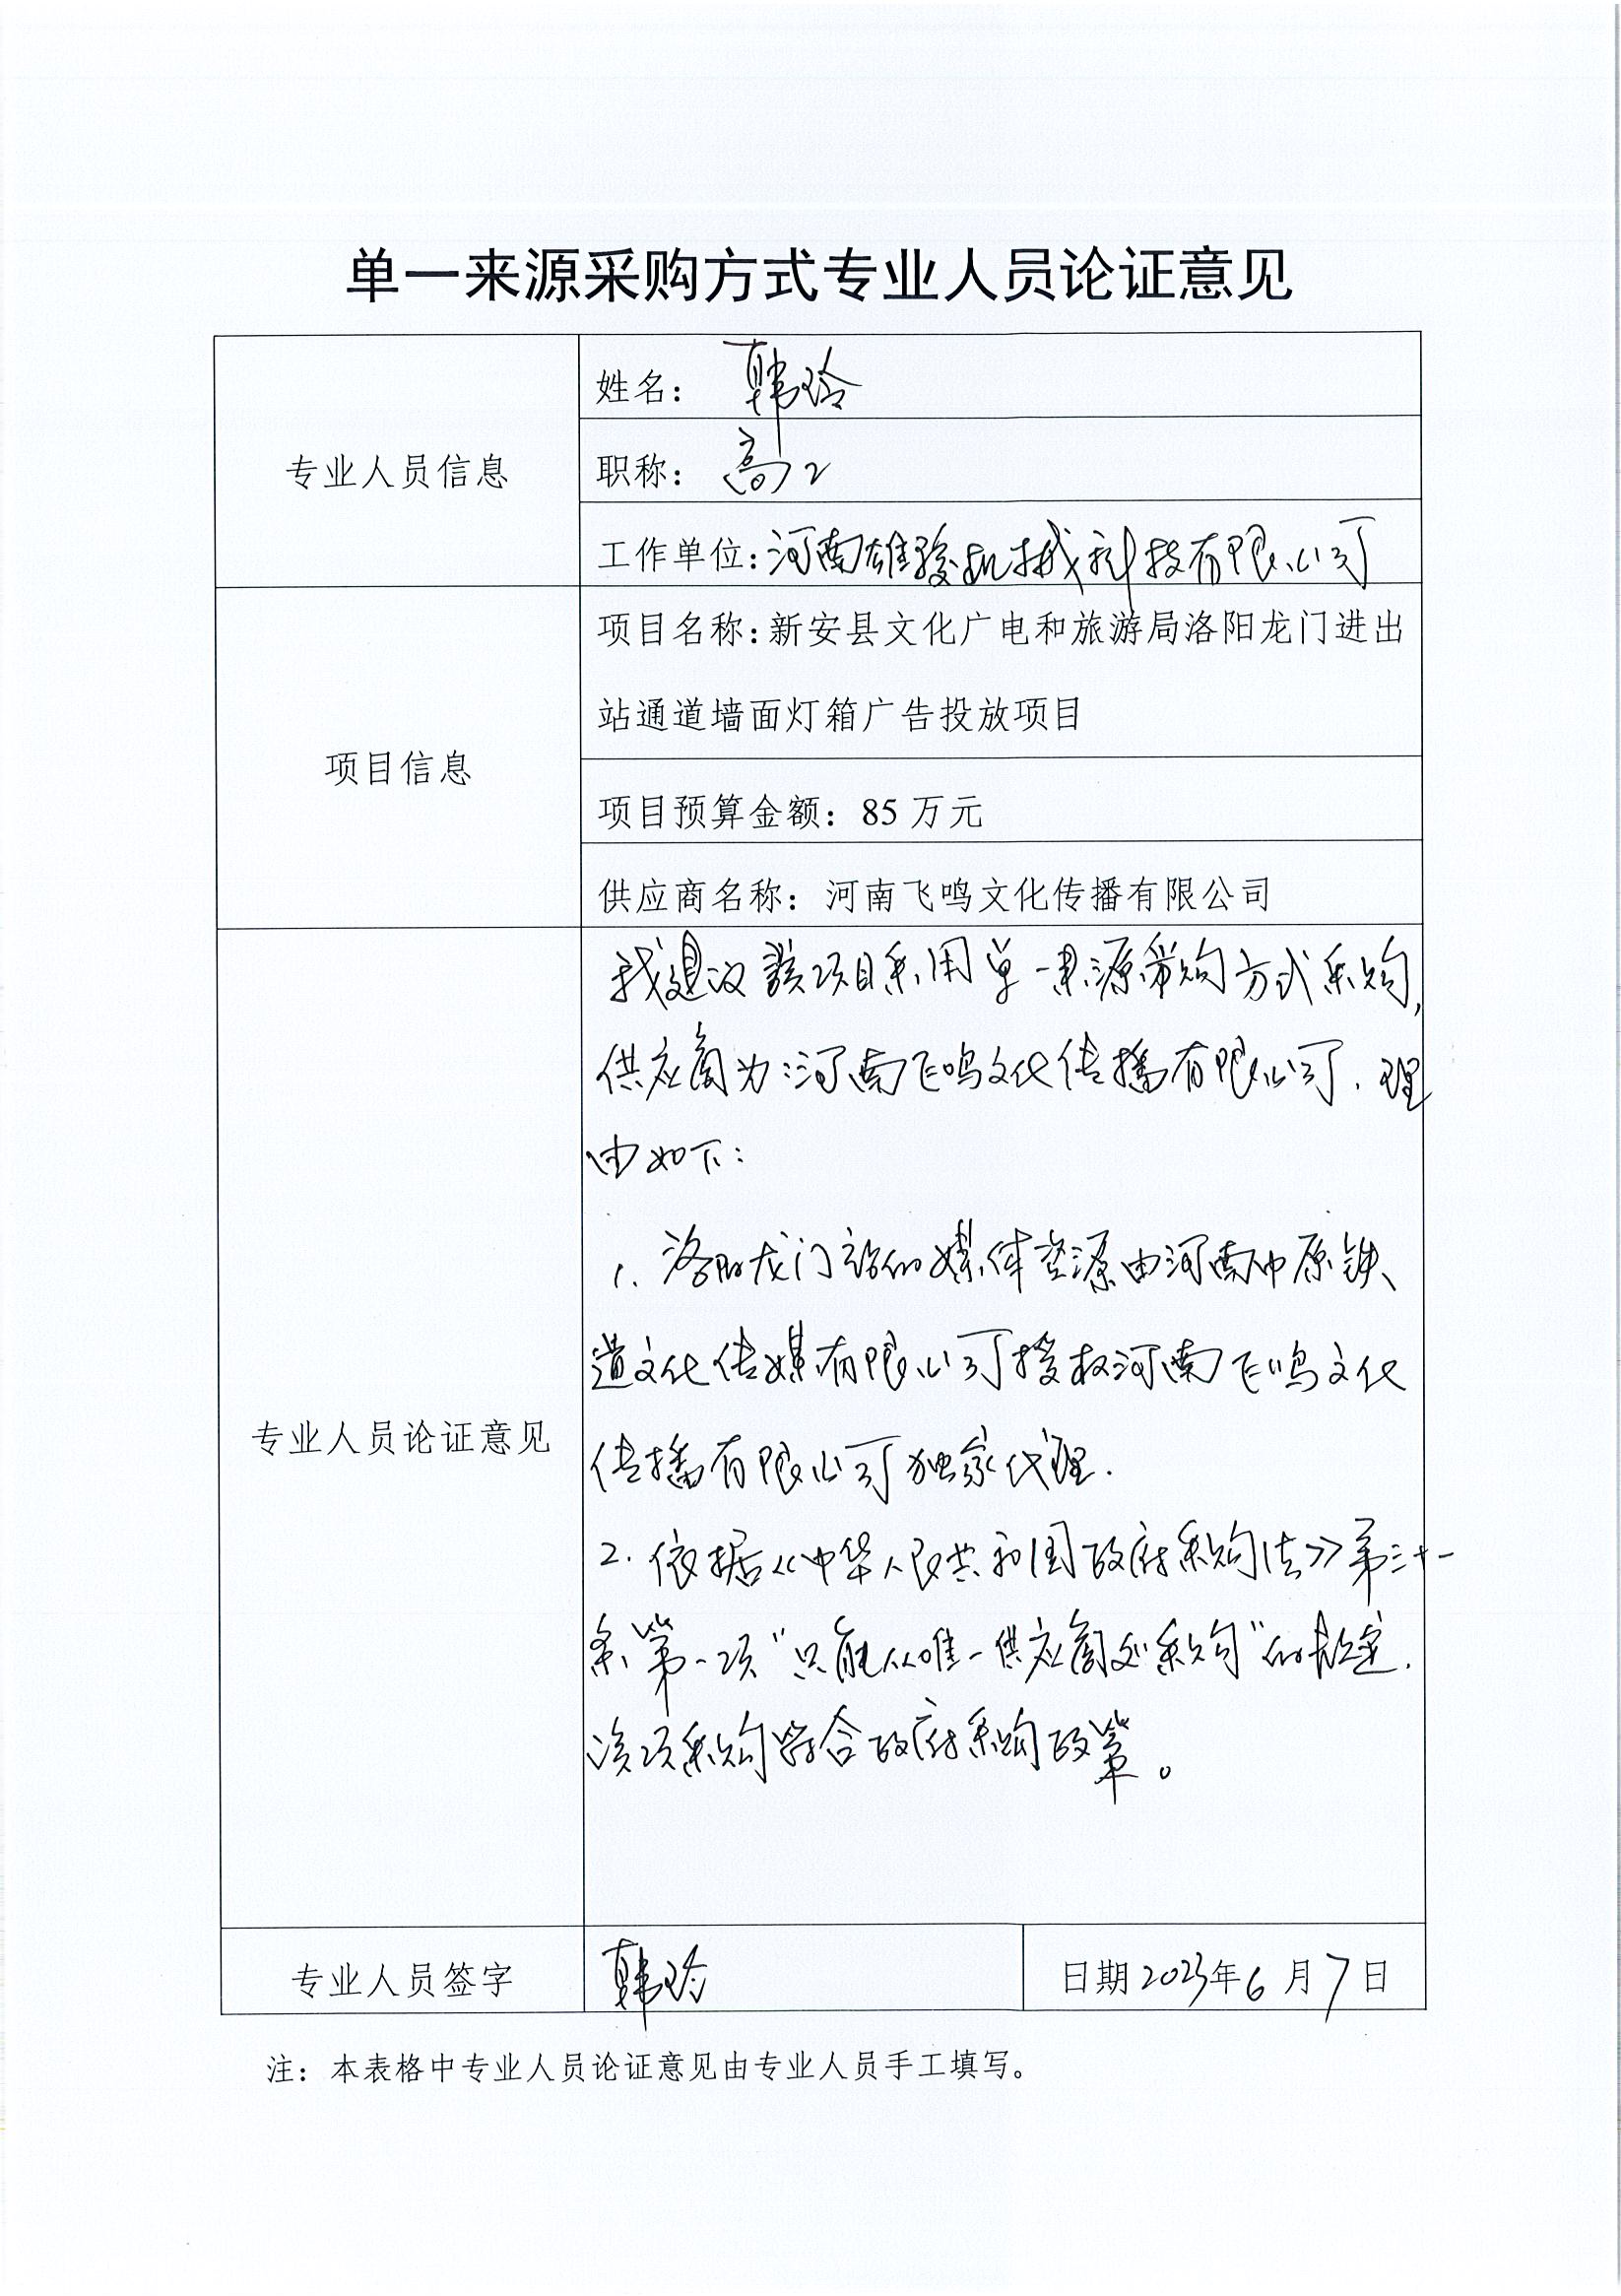 单一来源采购方式专业人员论证意见
专业人员信息
姓名：韩玲
职称：高工
工作单位：河南雄骏机械科技有限公司
项目信息
项目名称：新安县文化广电和旅游局洛阳龙门进出
站通道墙面灯箱广告投放项目
项目预算金额：85 万元
供应商名称：河南飞鸣文化传播有限公司
专业人员论证意见
我建议该项目采用单一来源采购方式采购，
供应商为：河南飞鸣文化传播有限公司．理
由如下：
1. 洛阳龙门站的媒体资源由河南中原铁
道文化传媒有限公司授权河南飞鸣文化
传播有限公司独家代理．
2. 依据《中华人民共和国政府采购法》第三十一
条第一项“只能从唯一供应商处采购”的规定．
该项采购符合政府采购政策。
专业人员签字
韩玲
日期 2023年 6 月 7 日
注：本表格中专业人员论证意见由专业人员手工填写。